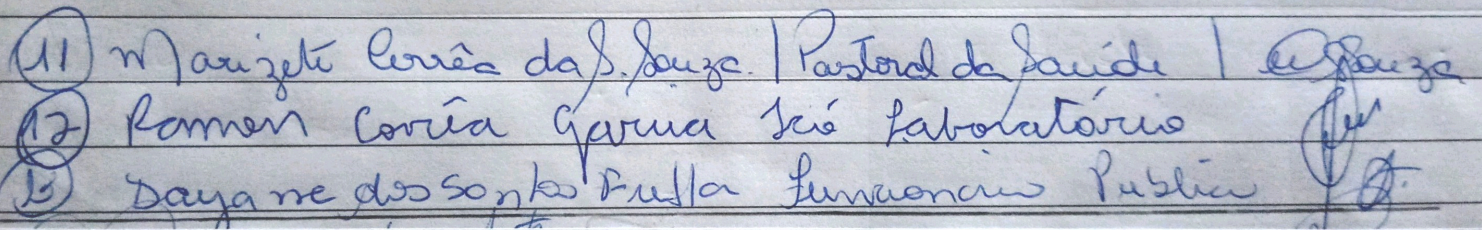 (11) Marizete Corrêa da S. Souza. | Pastoral da Saúde | Souza
(12) Ramon Corrêa Garcia Laboratório
(13) Dayane dos Santos Funcionario Publica